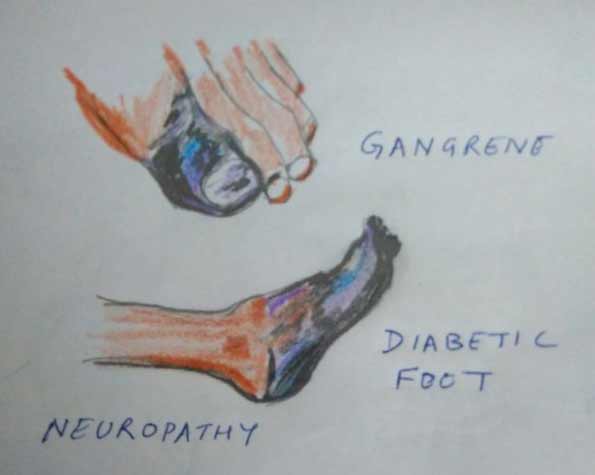 GANGRENE
DIABETIC
FOOT
NEUROPATHY